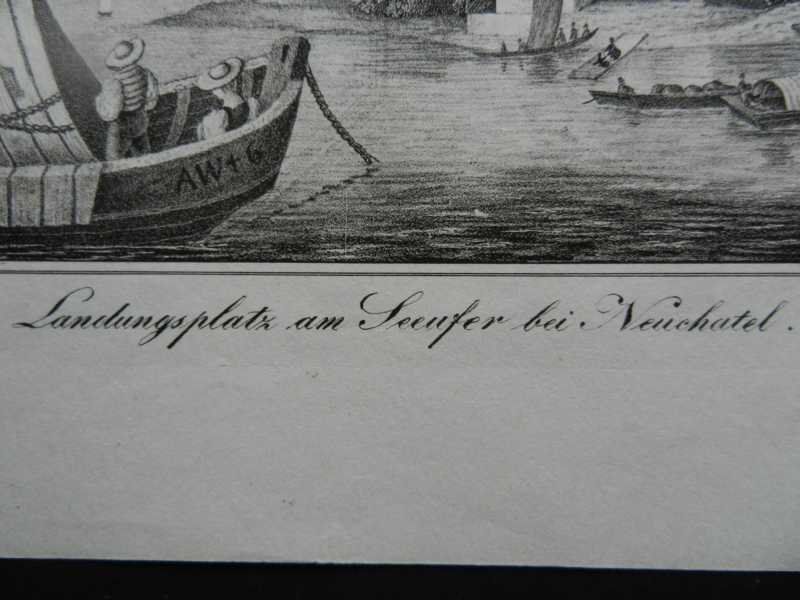 AW+G
Landungsplatz am Seeufer bei Neuchatel.